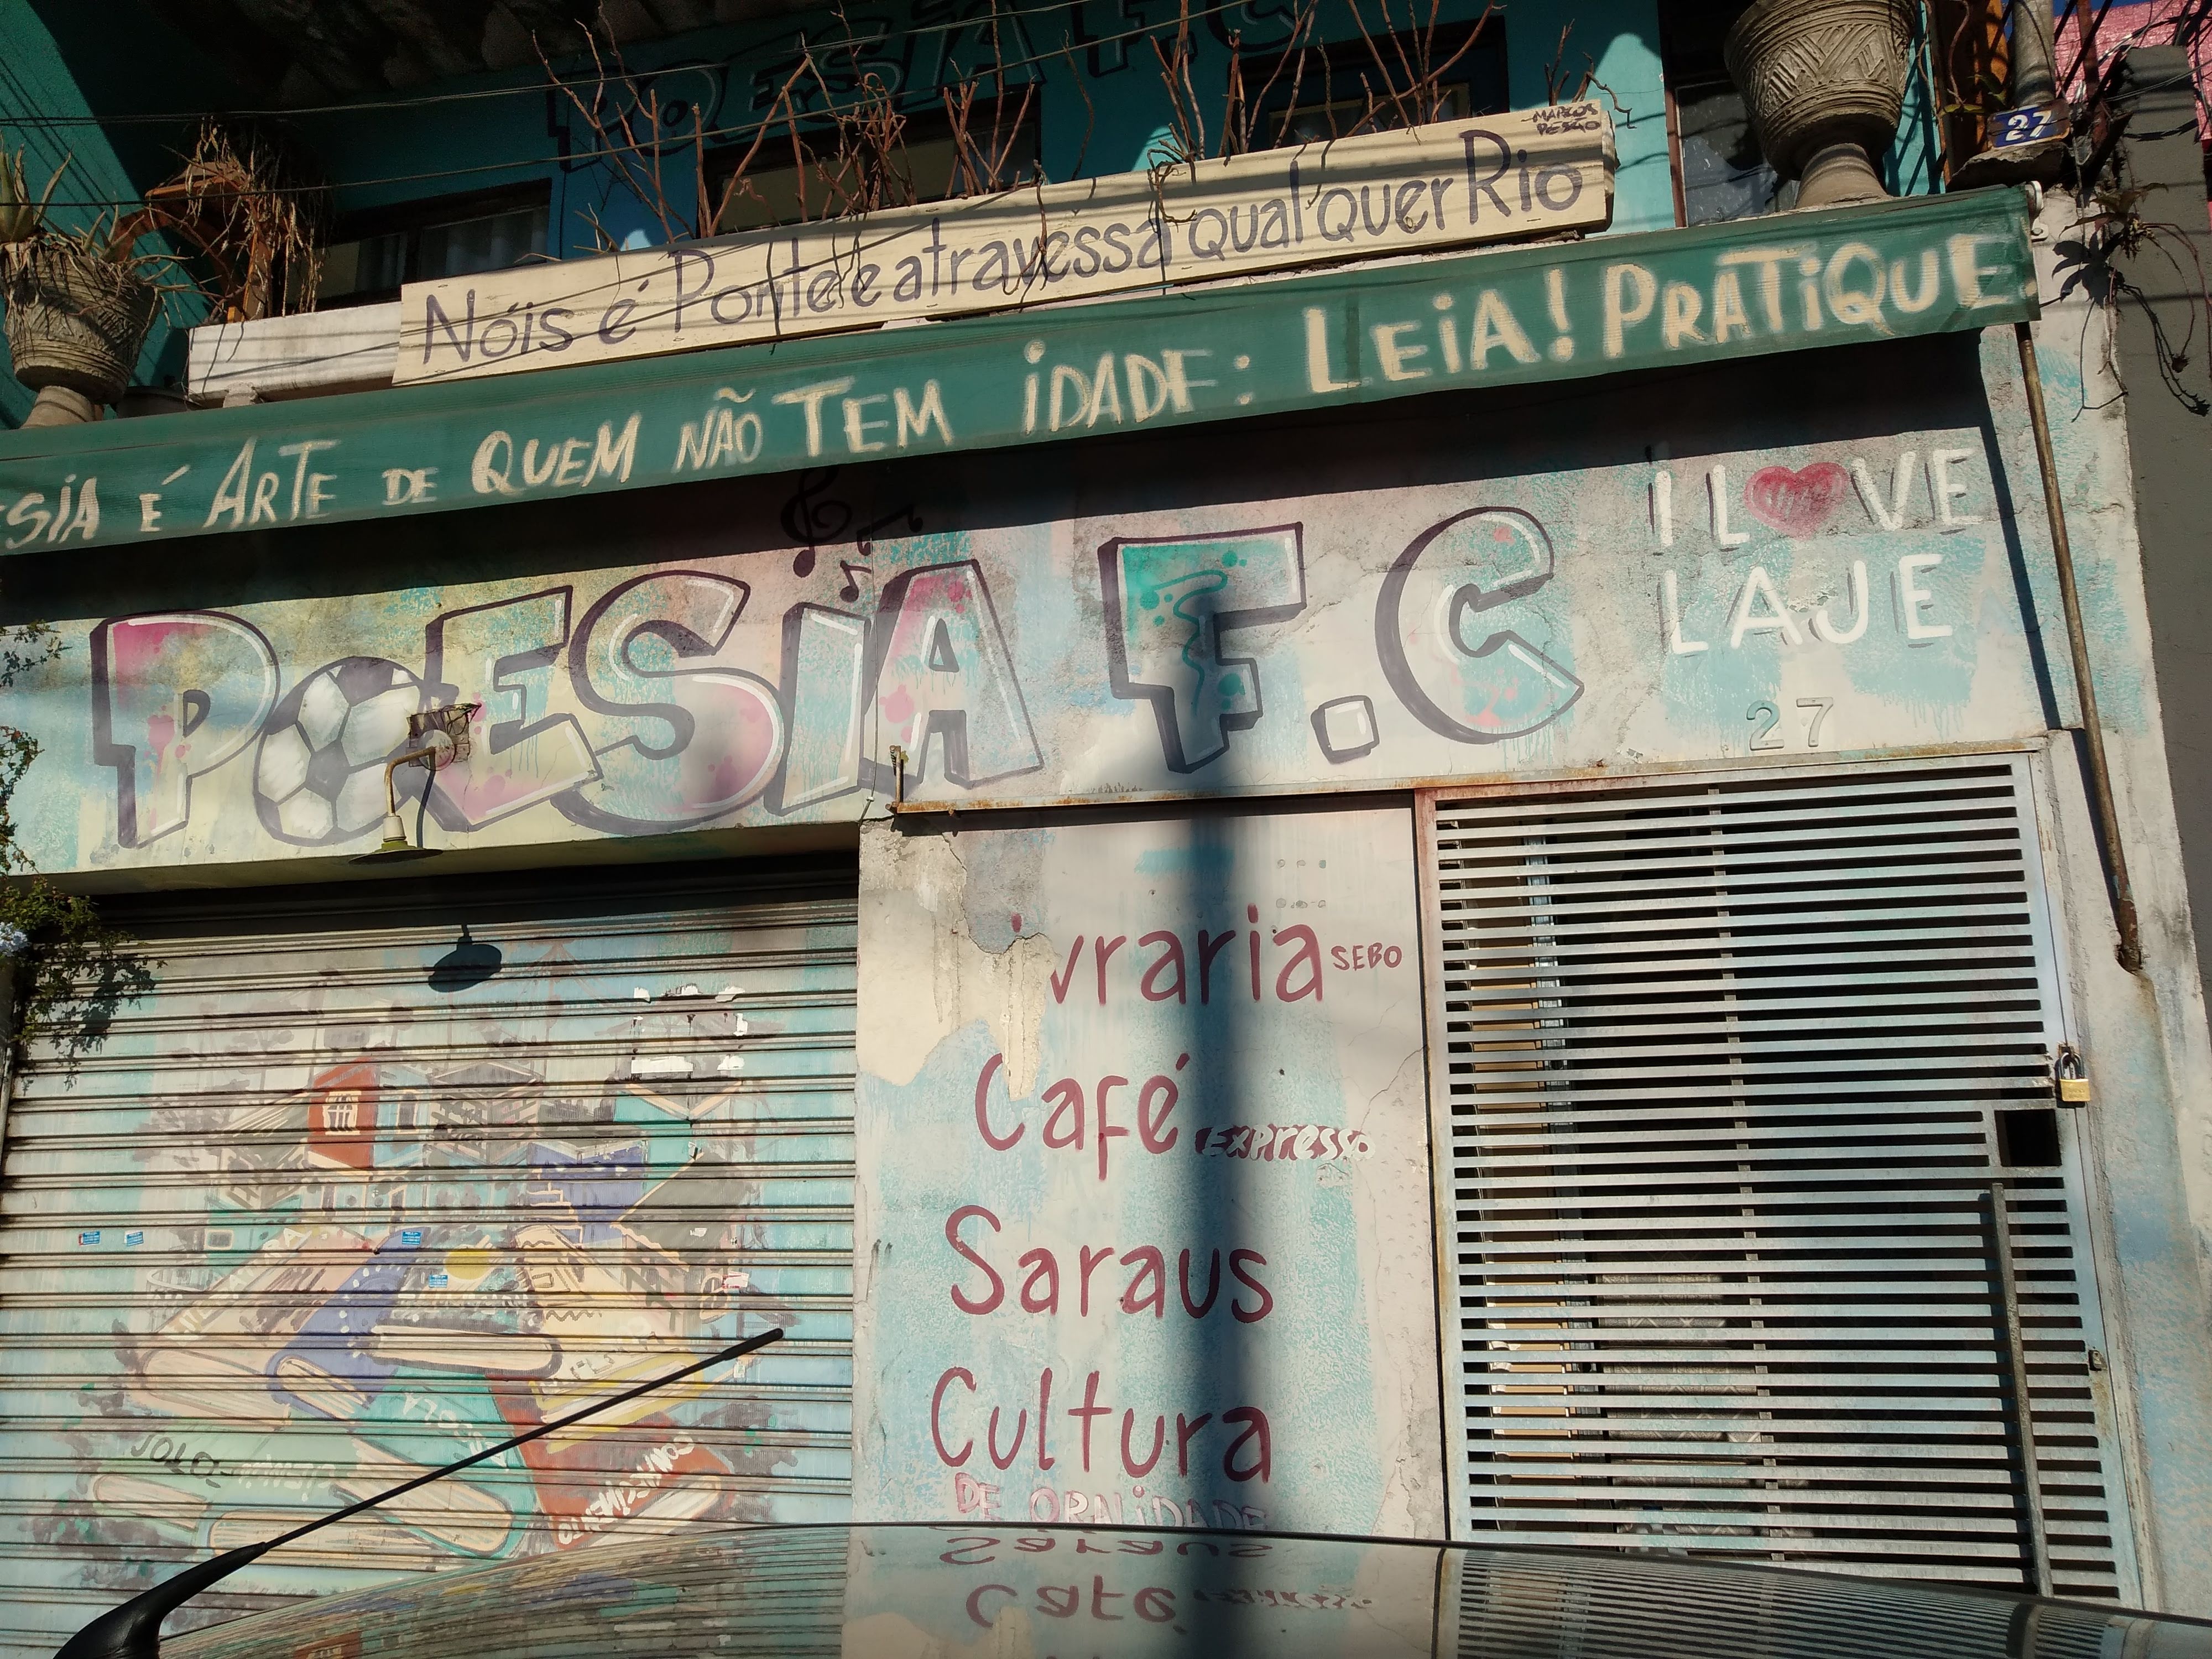 POESIA F.C
MARCOS
PEZÃO
27
Nóis é Ponte e atravessa qualquer Rio
SIA É ARTE DE QUEM NÃO TEM IDADE: LEIA! PRATIQUE
POESIA F.C
I LOVE
LAJE
27
ivraria SEBO
Café EXPresso
Saraus
Cultura
DE ORALIDADE
CONHECIMENTO